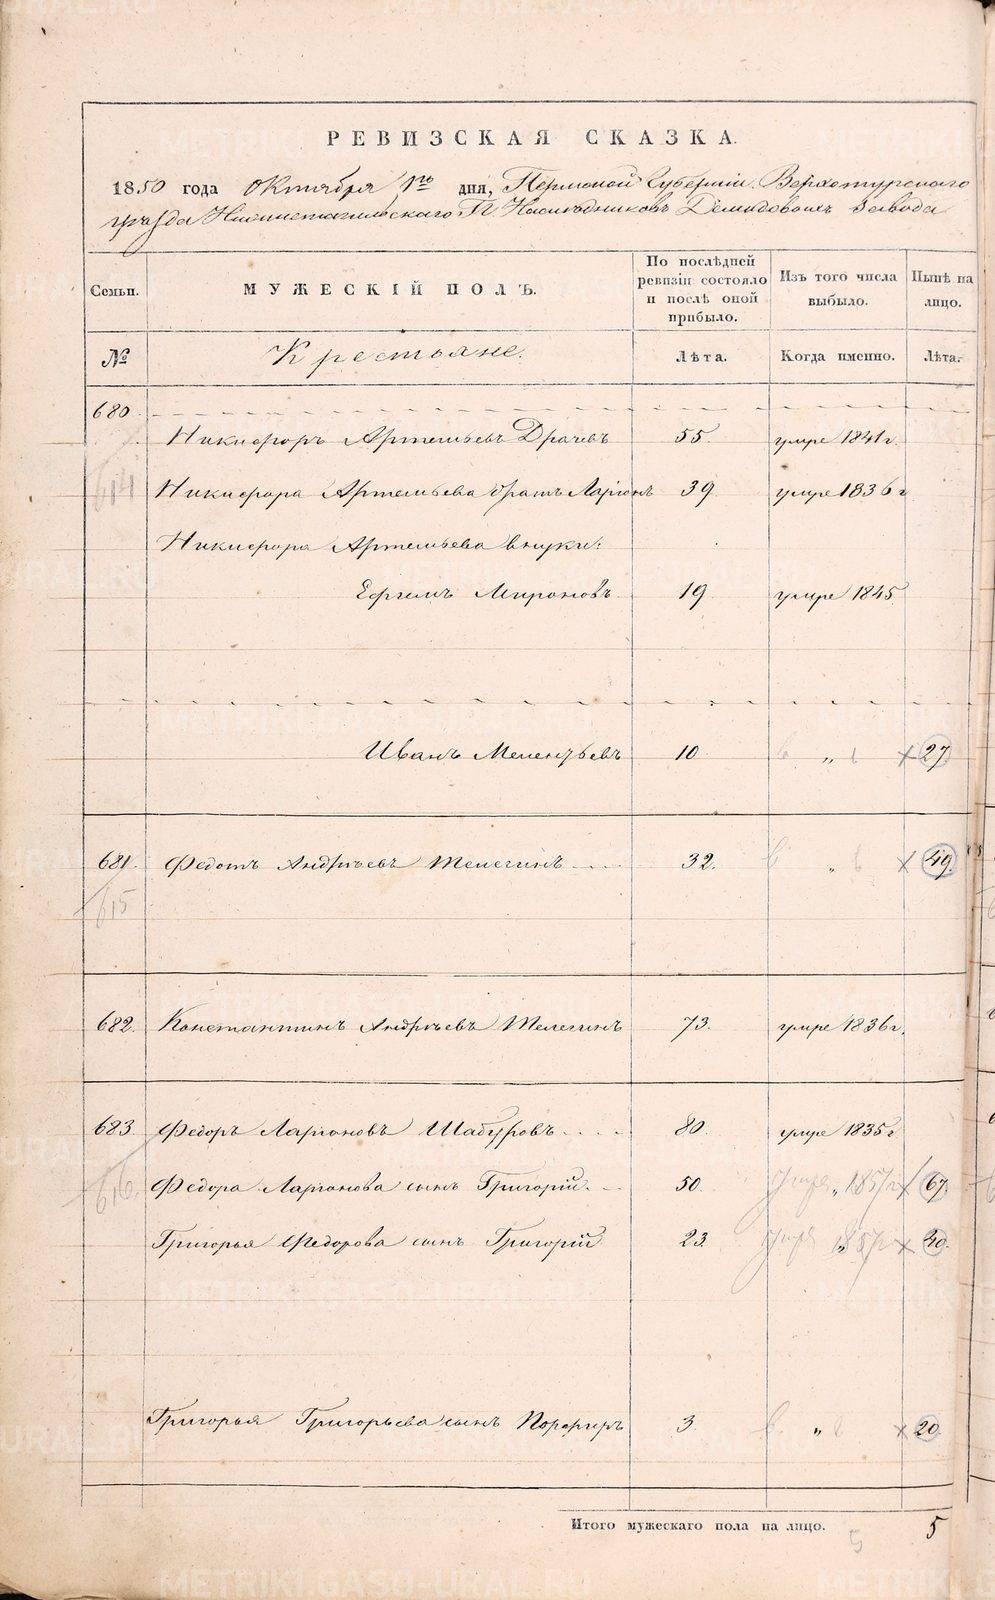 РЕВИЗСКАЯ СКАЗКА.
1850 года Октября 1го дня, Пермской Губернии Верхотурскаго
уѣзда Нижнетагильскаго Гг. Наслѣдниковъ Демидовыхъ завода
Семьи. МУЖЕСКІЙ ПОЛЪ. По послѣдней ревизіи состояло и послѣ оной прибыло. Изъ того числа выбыло. Нынѣ на лицо.
№ Крестьяне. Лѣта. Когда именно. Лѣта.
680
Никифоръ Артемьевъ Драчевъ 55. умре 1841 г.
614 Никифора Артемьева братъ Ларіонъ 39 умре 1836 г
Никифора Артемьева внуки:
Ефимъ Мироновъ 19 умре 1845
Иванъ Мелентьевъ 10 „ 27.
681. Федотъ Андрѣевъ Телегинъ 32. „ 49.
615
682. Константинъ Андрѣевъ Телегинъ 73. умре 1836 г.
683 Федоръ Ларіоновъ Шабуровъ 80. умре 1835 г
616. Федора Ларіонова сынъ Григорій 50. умре „ 1857 г 67
Григорья Федорова сынъ Григорій 23 умре „ 1857 г 40.
Григорья Григорьева сынъ Порфиръ 3 „ 20.
Итого мужескаго пола на лицо. 5 5
METRIKI.GASO-URAL.RU